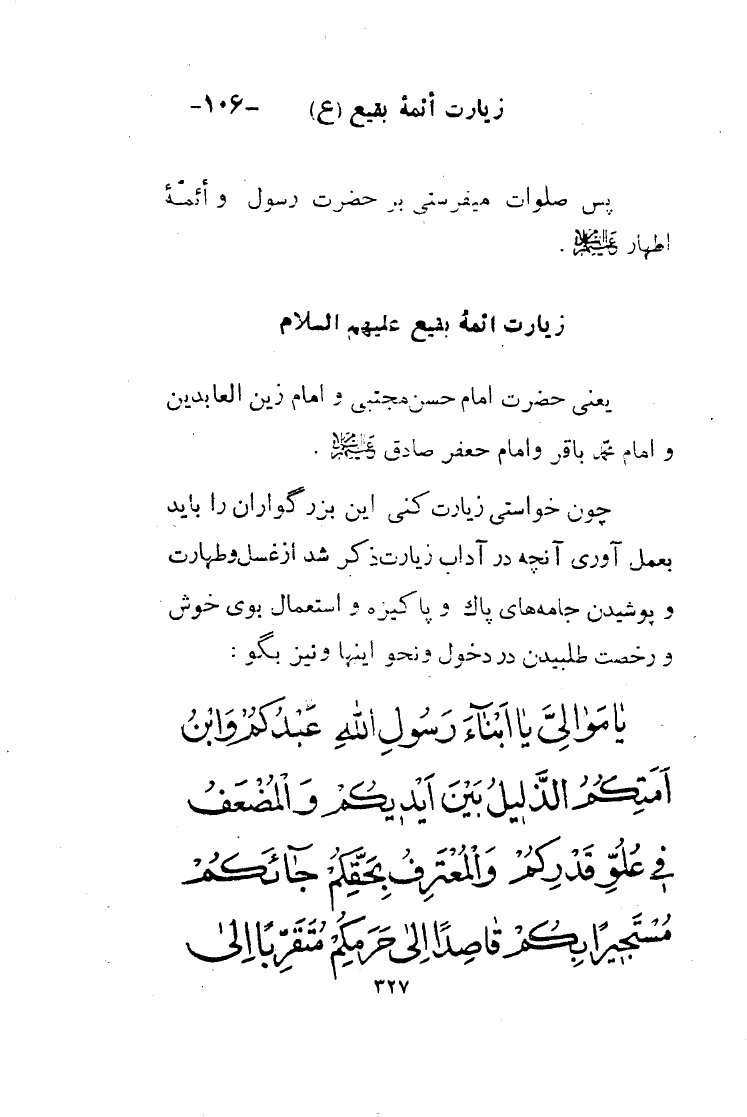 زیارت أئمهٔ بقیع (ع) -۱۰۶-
پس صلوات میفرستی بر حضرت رسول و أئمّهٔ
اطهار علیهم‌السلام .
زیارت ائمهٔ بقیع علیهم السلام
یعنی حضرت امام حسن مجتبی و امام زین العابدین
و امام محمّد باقر وامام جعفر صادق علیهم‌السلام .
چون خواستی زیارت کنی این بزرگواران را باید
بعمل آوری آنچه در آداب زیارت ذکر شد از غسل وطهارت
و پوشیدن جامه‌های پاك و پاکیزه و استعمال بوی خوش
و رخصت طلبیدن در دخول ونحو اینها ونیز بگو :
يٰا مَوٰالِيَّ يٰا اَبْنٰآءَ رَسُولِ اللهِ عَبْدُكُمْ وَابْنُ
اَمَتِكُمُ الذَّلِيلُ بَيْنَ اَيْدِيكُمْ وَالْمُضْعَفُ
فِي عُلُوِّ قَدْرِكُمْ وَالْمُعْتَرِفُ بِحَقِّكُمْ جٰآئَكُمْ
مُسْتَجِيرًا بِكُمْ قٰاصِدًا اِلىٰ حَرَمِكُمْ مُتَقَرِّبًا اِلىٰ
۳۲۷